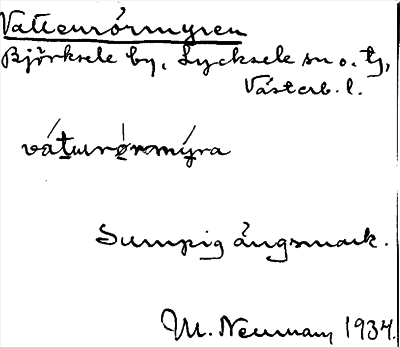 Vattenrörmyren
Björksele by, Lycksele sn o. tg,
Västerb. l.
vátturǿrmýra
Sumpig ängsmark.
M. Neuman, 1934.